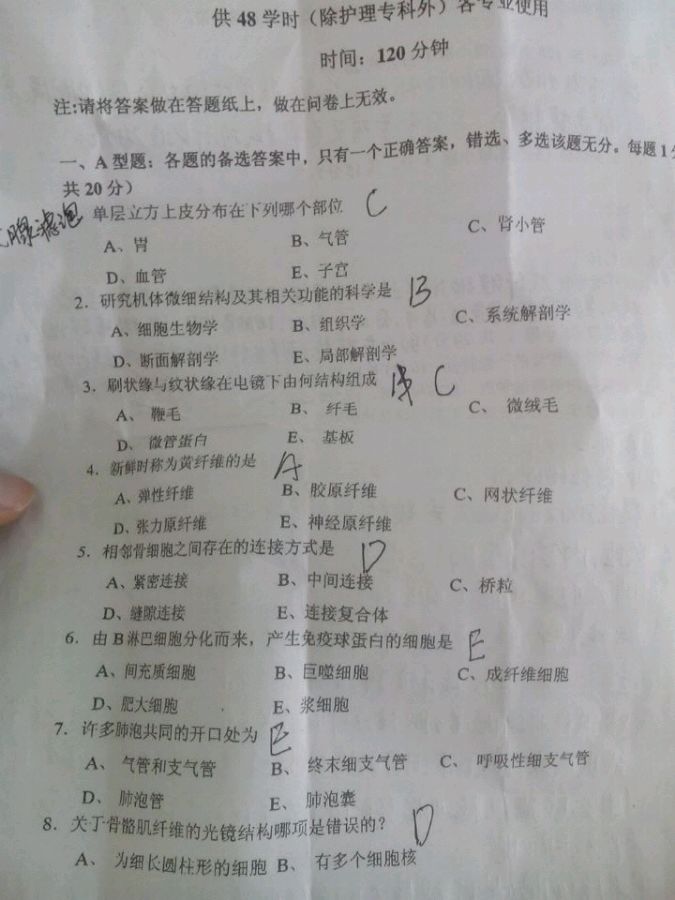 供 48 学时（除护理专科外）各专业使用
时间：120 分钟
注:请将答案做在答题纸上，做在问卷上无效。
一、A 型题：各题的备选答案中，只有一个正确答案，错选、多选该题无分。每题 1
共 20 分）
腺滤泡 单层立方上皮分布在下列哪个部位 C
A、胃 B、气管 C、肾小管
D、血管 E、子宫
2. 研究机体微细结构及其相关功能的科学是 B
A、细胞生物学 B、组织学 C、系统解剖学
D、断面解剖学 E、局部解剖学
3. 刷状缘与纹状缘在电镜下由何结构组成 C
A、 鞭毛 B、 纤毛 C、 微绒毛
D、 微管蛋白 E、 基板
4. 新鲜时称为黄纤维的是 A
A、弹性纤维 B、胶原纤维 C、网状纤维
D、张力原纤维 E、神经原纤维
5. 相邻骨细胞之间存在的连接方式是 D
A、紧密连接 B、中间连接 C、桥粒
D、缝隙连接 E、连接复合体
6. 由 B 淋巴细胞分化而来，产生免疫球蛋白的细胞是 E
A、间充质细胞 B、巨噬细胞 C、成纤维细胞
D、肥大细胞 E、浆细胞
7. 许多肺泡共同的开口处为 E
A、 气管和支气管 B、 终末细支气管 C、 呼吸性细支气管
D、 肺泡管 E、 肺泡囊
8. 关于骨骼肌纤维的光镜结构哪项是错误的？ D
A、 为细长圆柱形的细胞 B、 有多个细胞核